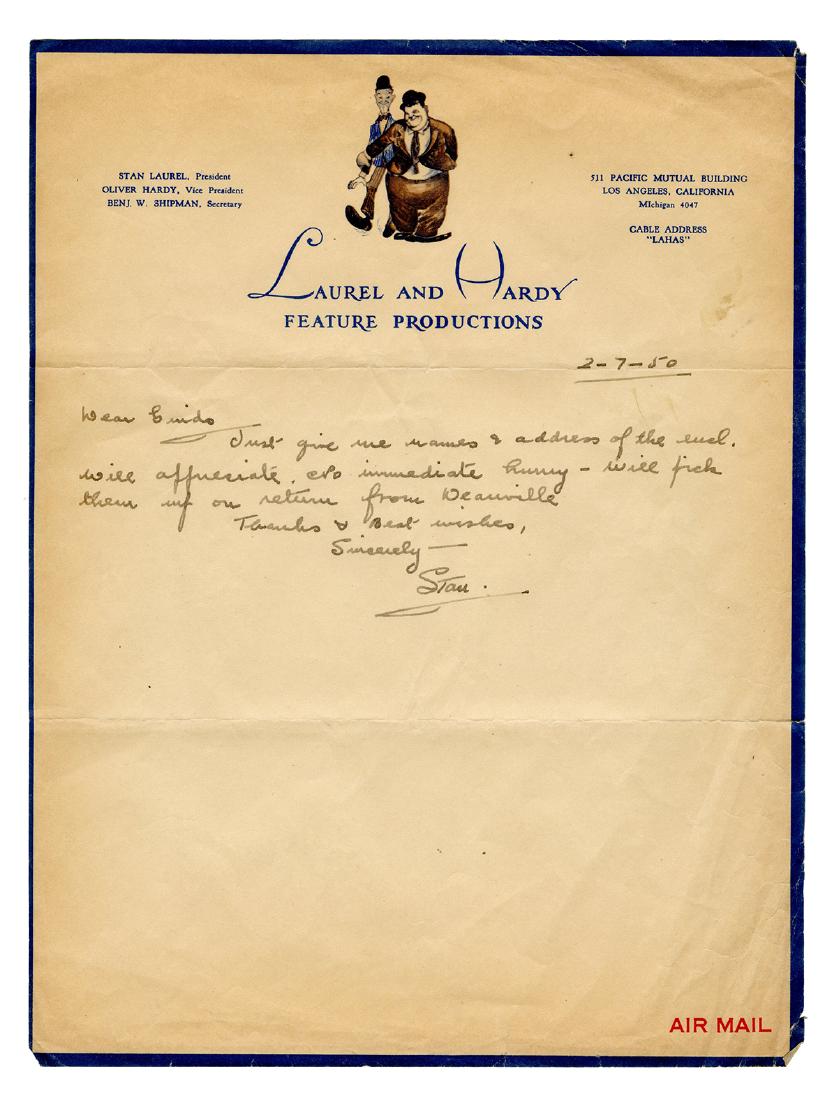 STAN LAUREL, President
OLIVER HARDY, Vice President
BENJ. W. SHIPMAN, Secretary
511 PACIFIC MUTUAL BUILDING
LOS ANGELES, CALIFORNIA
MIchigan 4047
CABLE ADDRESS
"LAHAS"
LAUREL AND HARDY
FEATURE PRODUCTIONS
2-7-50
Dear Guido
Just give me names & address of the encl.
will appreciate. No immediate hurry - will pick
them up on return from Deauville
Thanks & Best wishes,
Sincerely —
Stan.
AIR MAIL